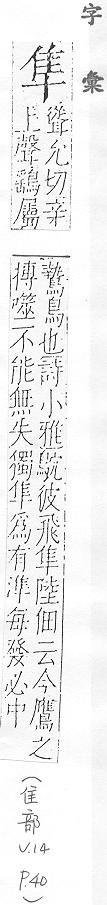 字彙
隼
聳允切荀
上聲鷂屬
鷙鳥也詩小雅鴥彼飛隼陸佃云今鷹之
搏噬不能無失獨隼為有準每發必中
(隹部
V.14
P.40)